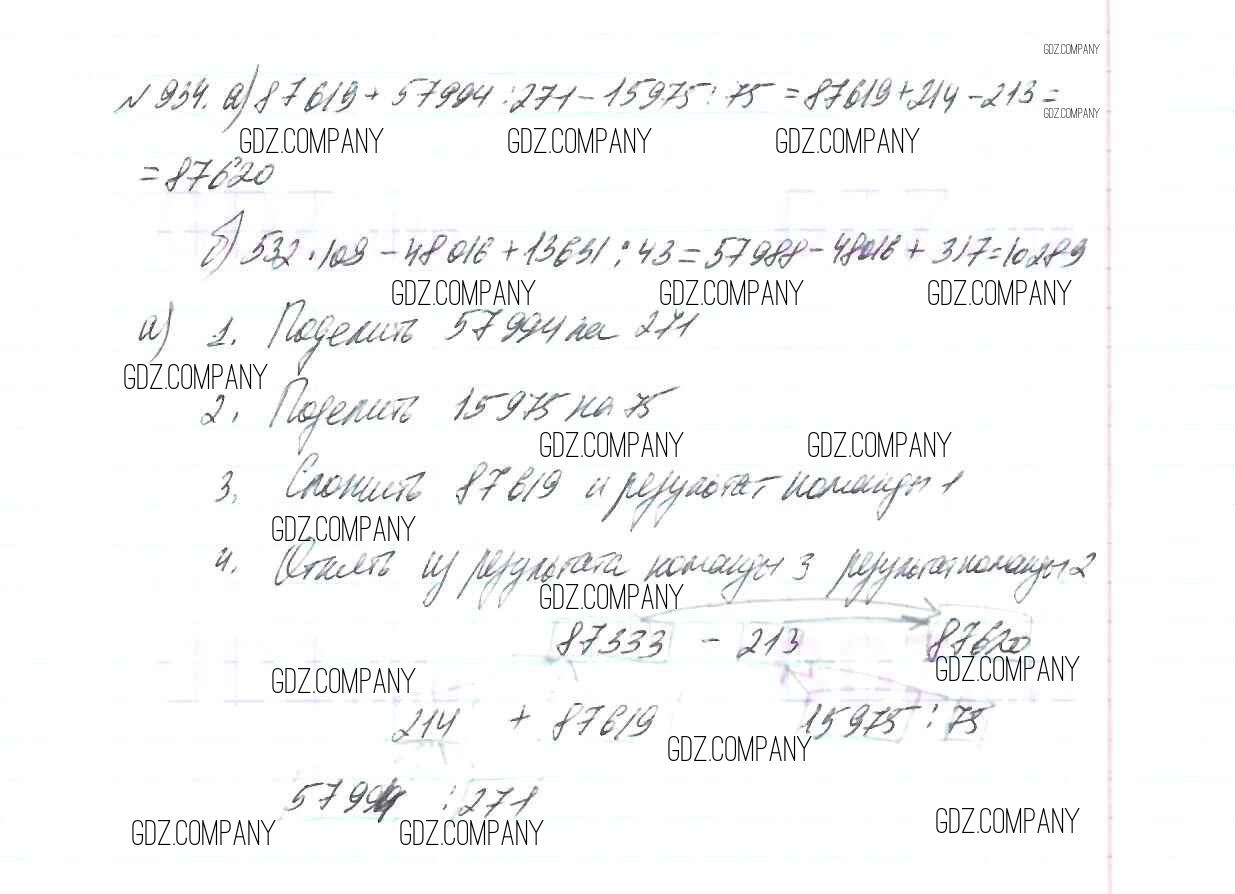 GDZ.COMPANY
№934. а) 87619 + 57994 : 271 - 15975 : 75 = 87619 + 214 - 213 =
GDZ.COMPANY
GDZ.COMPANY GDZ.COMPANY GDZ.COMPANY
= 87620
б) 532 · 109 - 48016 + 13631 : 43 = 57988 - 48016 + 317 = 10289
GDZ.COMPANY GDZ.COMPANY GDZ.COMPANY
а) 1. Поделить 57994 на 271
GDZ.COMPANY
2. Поделить 15975 на 75
GDZ.COMPANY GDZ.COMPANY
3. Сложить 87619 и результат команды 1
GDZ.COMPANY
4. Отнять из результата команды 3 результат команды 2
GDZ.COMPANY
87333 - 213 87620
GDZ.COMPANY GDZ.COMPANY
214 + 87619 15975 : 75
GDZ.COMPANY
57994 : 271
GDZ.COMPANY GDZ.COMPANY GDZ.COMPANY